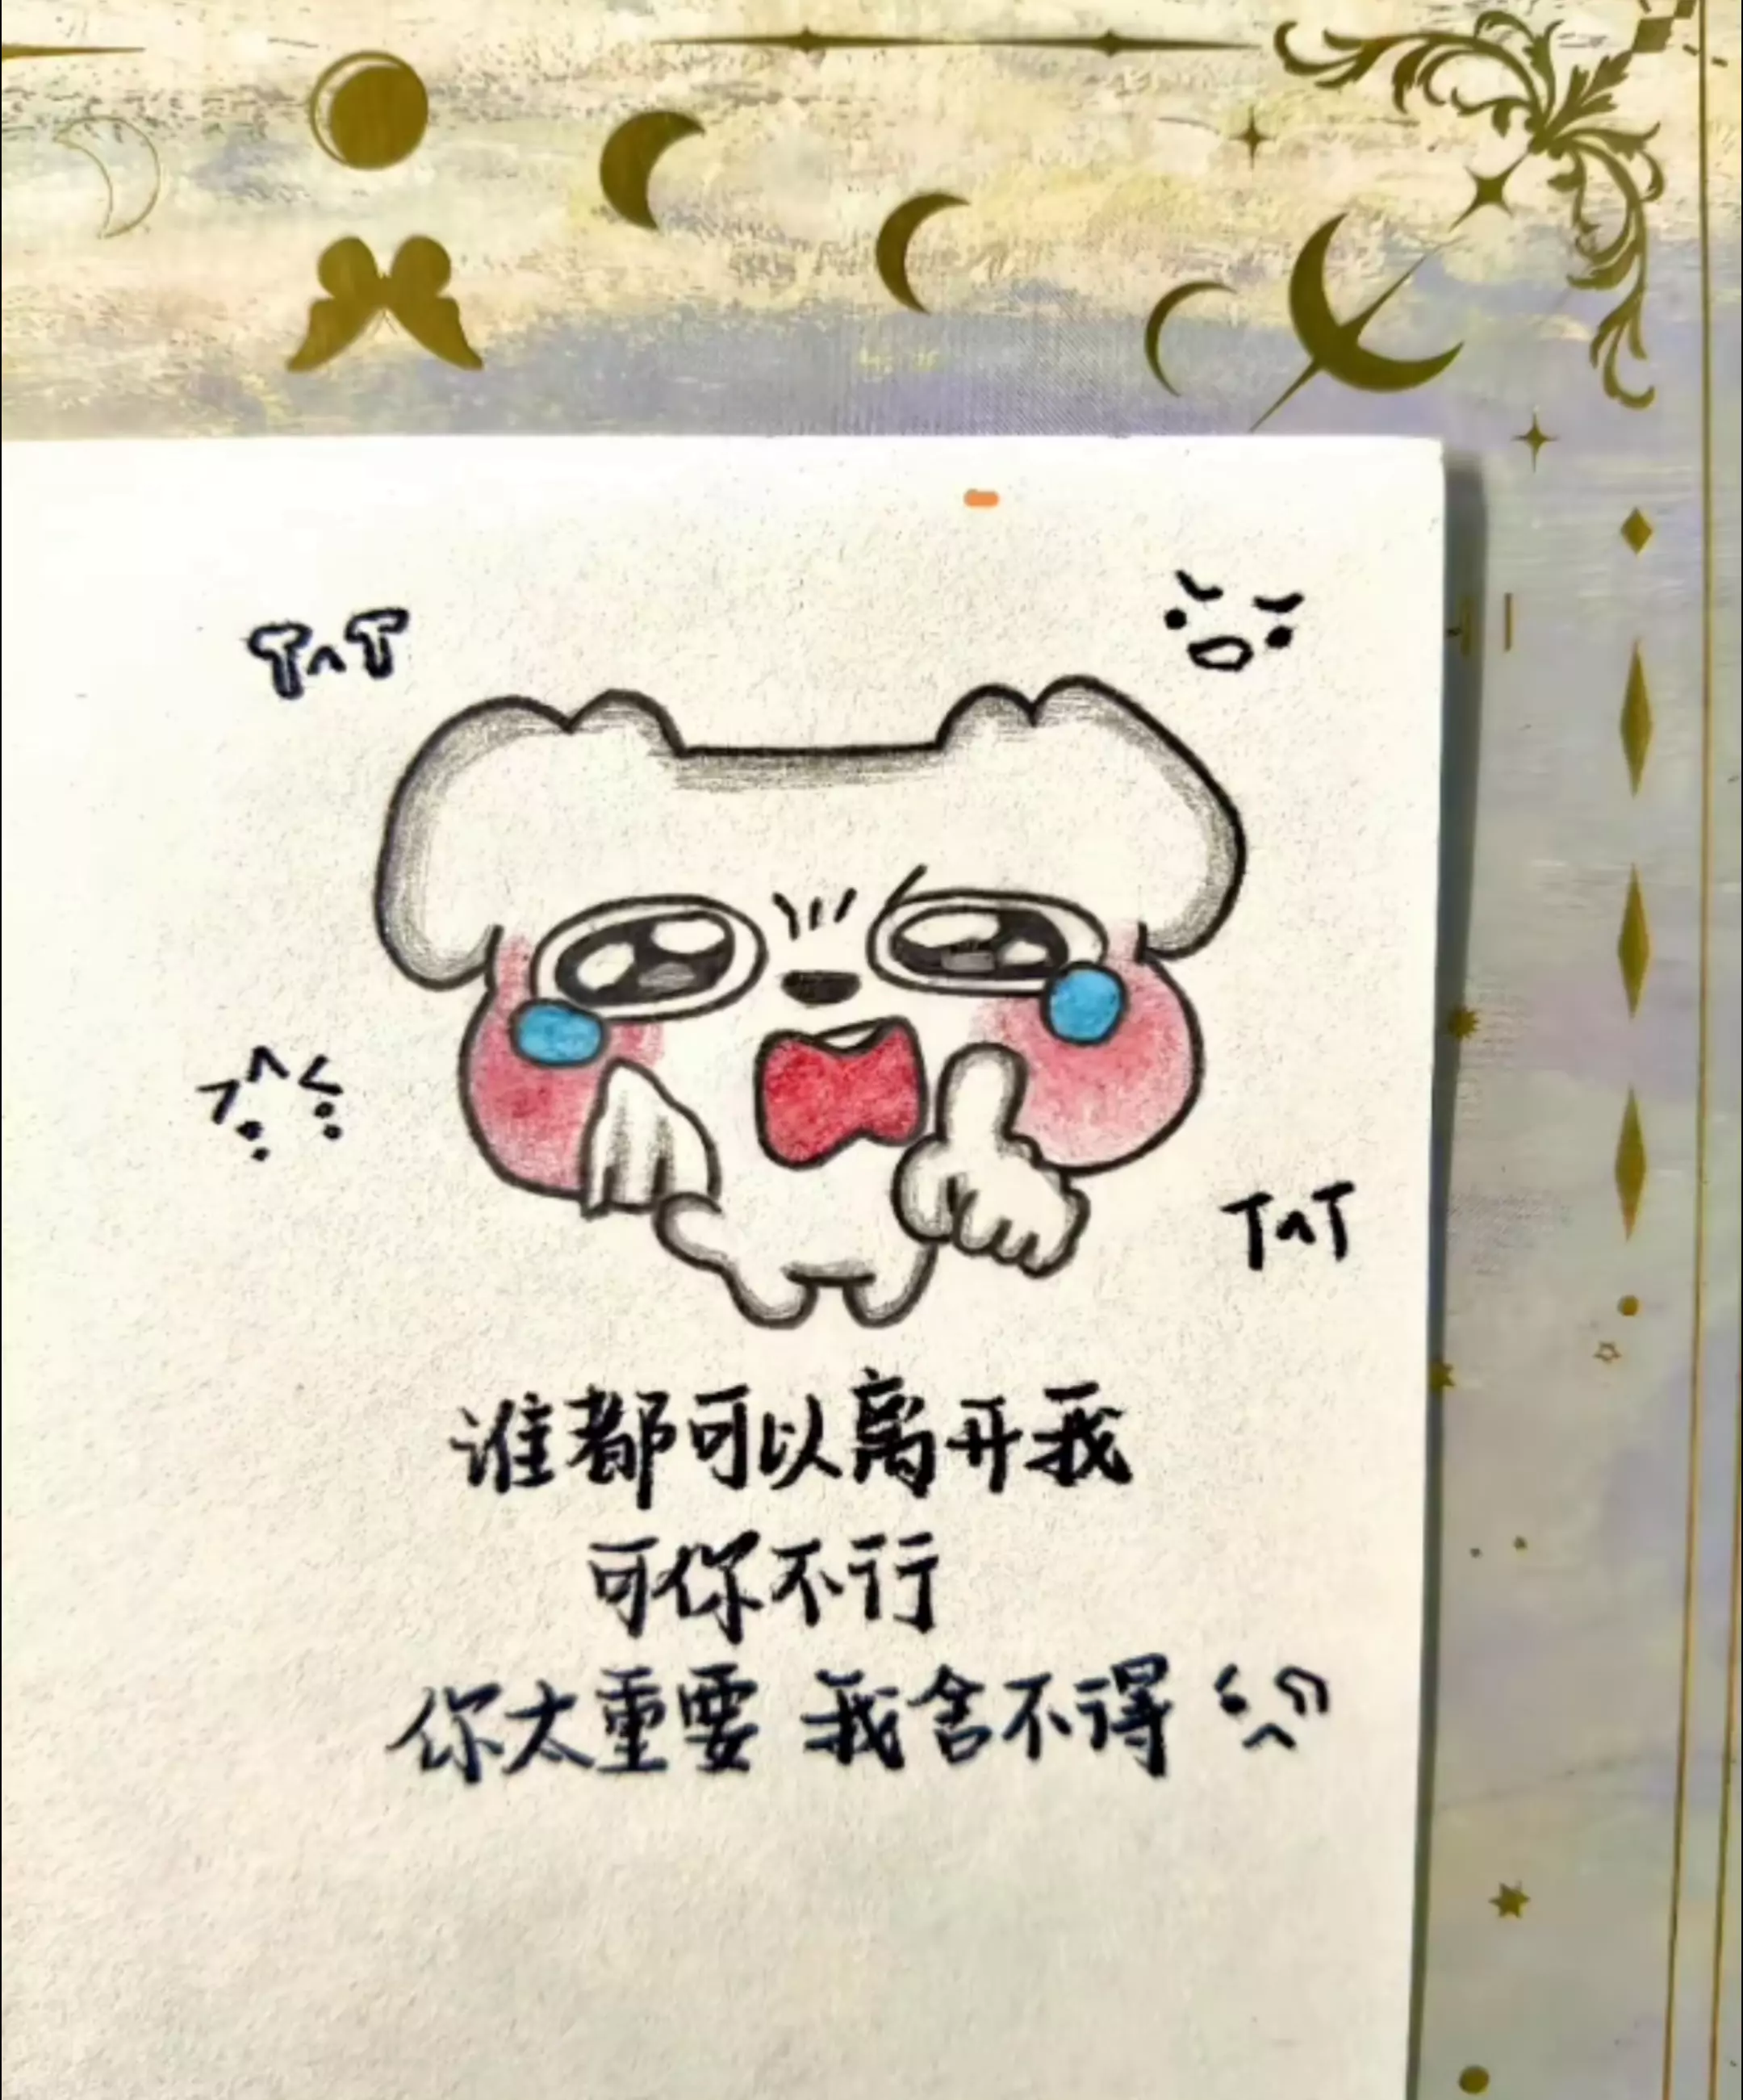 TnT
TnT
谁都可以离开我
可你不行
你太重要 我舍不得